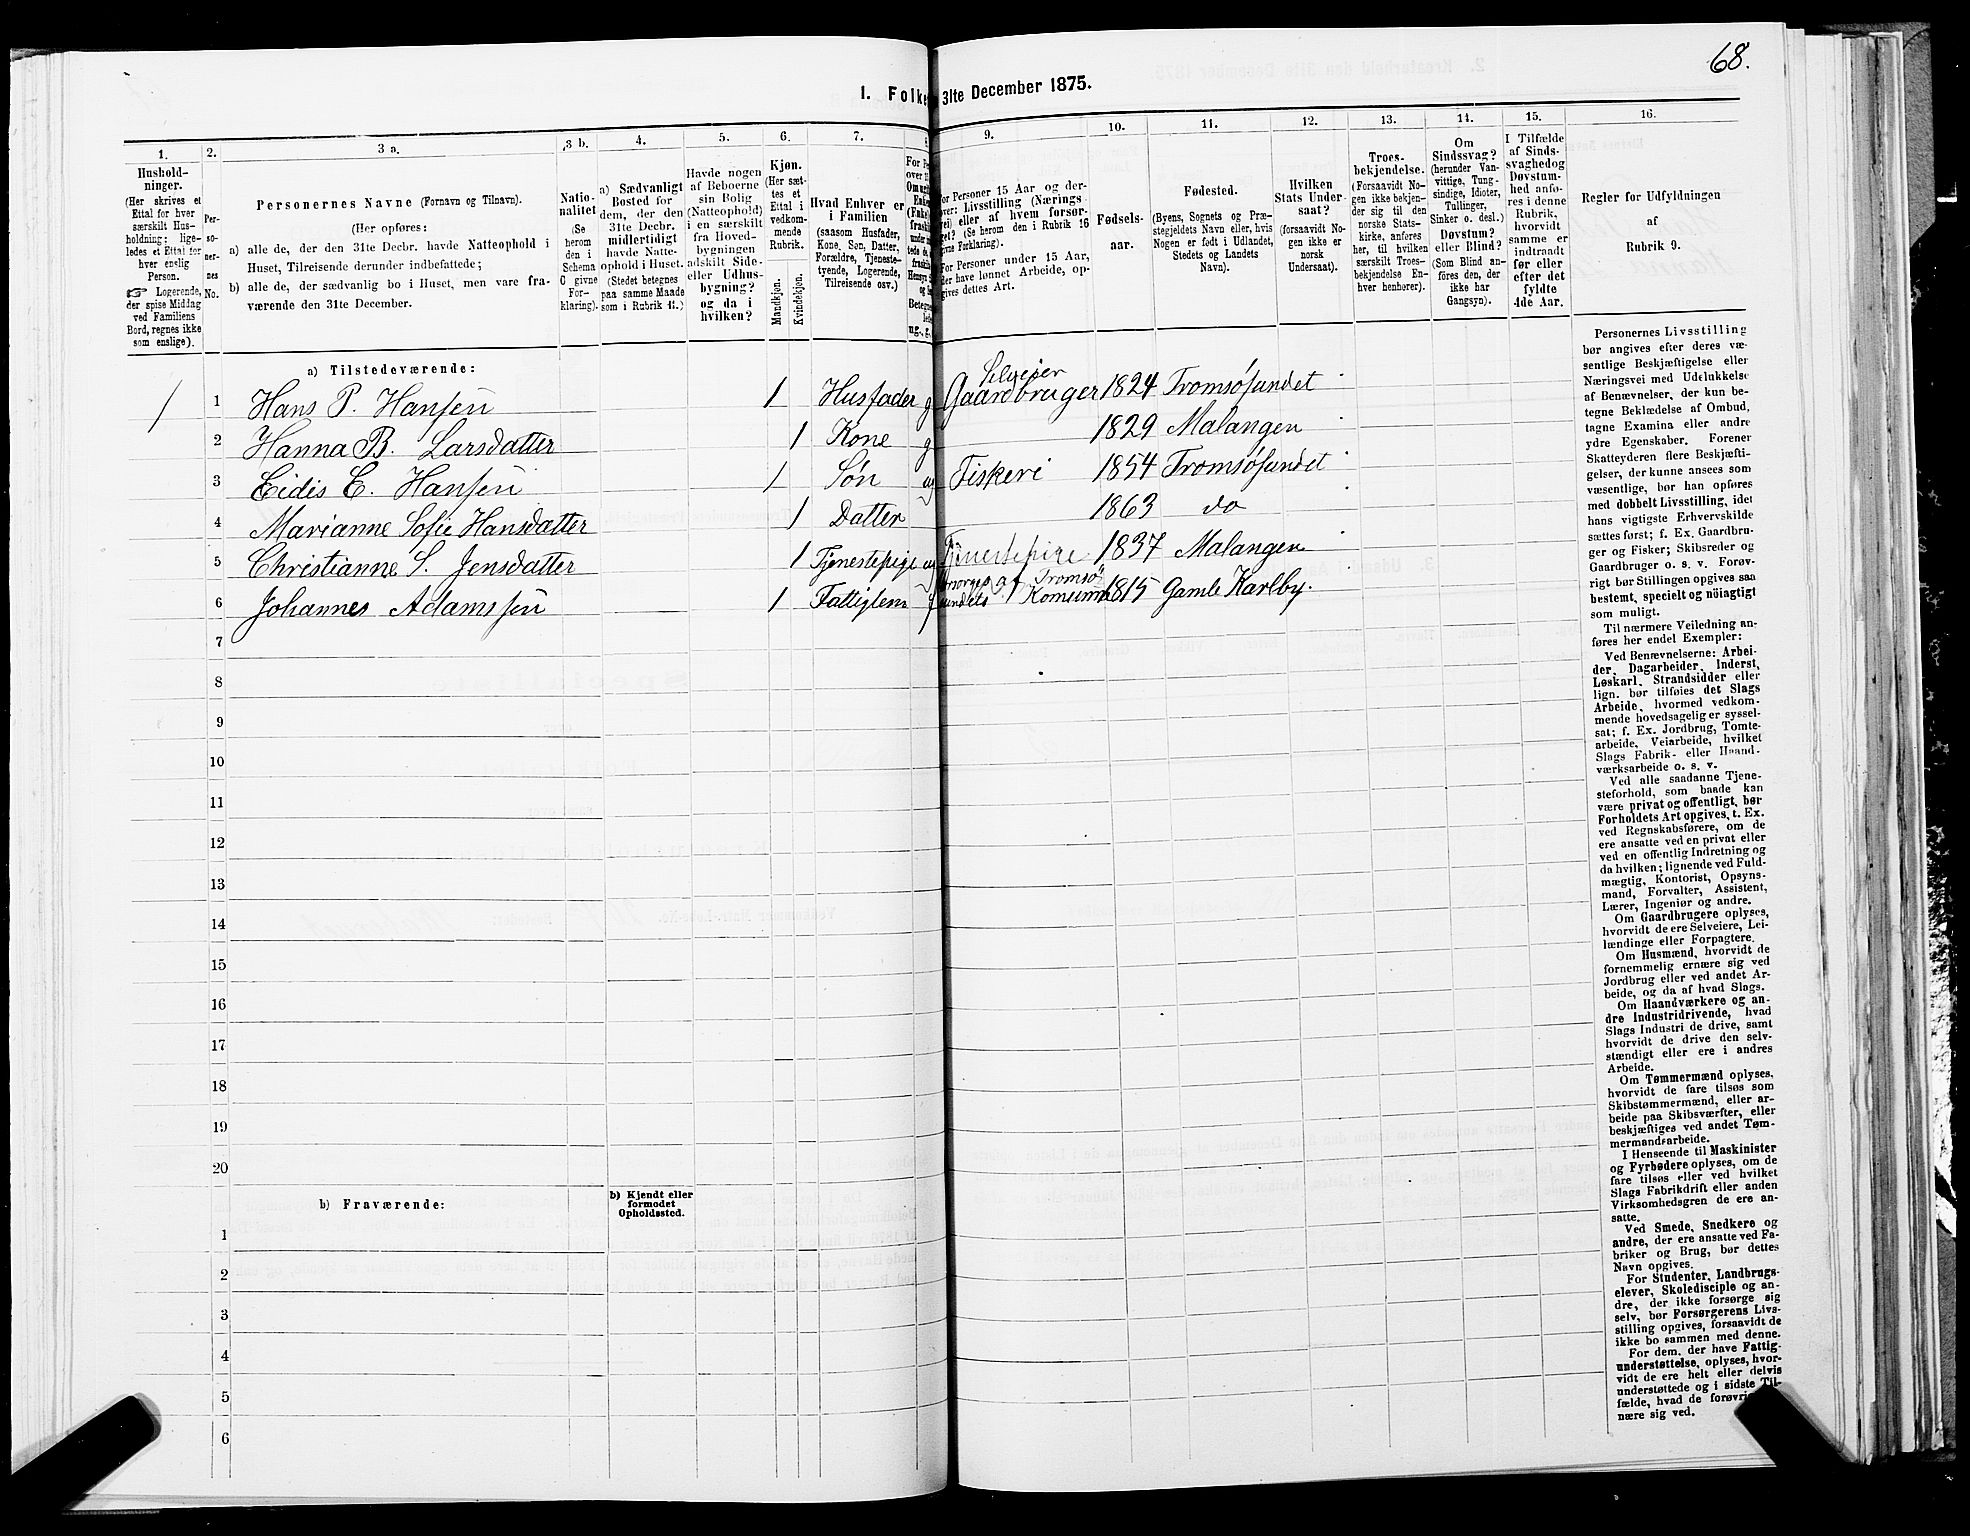 68.
1. Folke 31te December 1875.
1. 2. 3 a. 3 b. 4. 5. 6. 7. 9. 10. 11. 12. 13. 14. 15. 16.
Hushold-
ninger.
(Her skrives et
Ettal for hver
særskilt Hus-
holdning; lige-
ledes et Ettal for
hver enslig
Person.
☞ Logerende,
der spise Middag
ved Familiens
Bord, regnes ikke
som enslige).
Per-
so-
ner-
nes
No.
Personernes Navne (Fornavn og Tilnavn).
(Her opføres:
a) alle de, der den 31te Decbr. havde Natteophold i
Huset, Tilreisende derunder indbefattede;
b) alle de, der sædvanlig bo i Huset, men vare fra-
værende den 31te December.
Natio-
nalitet
(Se
herom
den i
Schema
C givne
For-
klaring).
a) Sædvanligt
Bosted for
dem, der den
31te Decbr.
midlertidigt
havde Natte-
ophold i Huset.
(Stedet betegnes
paa samme Maade
som i Rubrik 11.)
Havde nogen
af Beboerne
sin Bolig
(Natteophold)
i en særskilt
fra Hoved-
bygningen
adskilt Side-
eller Udhus-
bygning?
og da i
hvilken?
Kjøn.
(Her sæt-
tes et
Ettal i
vedkom-
mende
Rubrik.
Mandkjøn.
Kvindekjøn.
Hvad Enhver er
i Familien
(saasom Husfader,
Kone, Søn, Datter,
Forældre, Tjeneste-
tyende, Logerende,
Tilreisende osv.)
For Personer 15 Aar og der-
over: Livsstilling (Nærings-
vei) eller af hvem forsør-
get? (Se herom den i Rubrik 16
givne Forklaring).
For Personer under 15 Aar,
der have lønnet Arbeide, op-
gives dettes Art.
Fødsels-
aar.
Fødested.
(Byens, Sognets og Præ-
stegjeldets Navn eller, hvis
Nogen er født i Udlandet,
Stedets og Landets
Navn).
Hvilken
Stats Under-
saat?
(forsaavidt No-
gen ikke er
norsk
Undersaat).
Troes-
bekjendelse.
(Forsaavidt No-
gen ikke bekjen-
der sig til den
norske Stats-
kirke, anføres
her, til hvilken
særskilt Troes-
bekjendelse En-
hver henhører).
Om
Sindssvag?
(herunder Van-
vittige, Tung-
sindige, Idioter,
Tullinger,
Sinker o. desl.)
Døvstum?
eller Blind?
(Som Blind an-
føres den, der
ikke har
Gangsyn).
I Tilfælde
af Sinds-
svaghed og
Døvstum-
hed anfø-
res i denne
Rubrik,
hvorvidt
samme er
indtraadt
før eller
efter det
fyldte
4de Aar.
Regler for Udfyldningen
af
Rubrik 9.
a) Tilstedeværende:
1 1 Hans P. Hansen 1 Husfader g Gaardbruger Selveier 1824 Tromsøsundet
2 Hanna B. Larsdatter 1 Kone g 1829 Malangen
3 Eidis E. Hansen 1 Søn ug Fiskeri 1854 Tromsøsundet
4 Marianne Sofie Hansdatter 1 Datter 1863 do
5 Christianne S. Jensdatter 1 Tjenestepige ug Tjenestepige 1837 Malangen
6 Johannes Adamssen 1 Fattiglem f forsørges af Tromsø sundets Komeunn 1815 Gamle Karlby.
7
8
9
10
11
12
13
14
15
16
17
18
19
20
b) Fraværende:
b) Kjendt eller
formodet
Opholdssted.
1
2
3
4
5
6
Personernes Livsstilling
bør angives efter deres væ-
sentlige Beskjæftigelse eller
Næringsvei med Udelukkelse
af Benævnelser, der kun be-
tegne Beklædelse af Ombud,
tagne Examina eller andre
ydre Egenskaber. Forener
Skatteyderen flere Beskjæfti-
gelser, der kunne ansees som
væsentlige, bør han opføres
med dobbelt Livsstilling, idet
hans vigtigste Erhvervskilde
sættes først; f. Ex. Gaardbru-
ger og Fisker; Skibsreder og
Gaardbruger o. s. v. Forøv-
rigt bør Stillingen opgives saa
bestemt, specielt og nøiagtigt
som muligt.
Til nærmere Veiledning an-
føres her endel Exempler:
Ved Benævnelserne: Arbei-
der, Dagarbeider, Inderst,
Løskarl, Strandsidder eller
lign. bør tilføies det Slags
Arbeide, hvormed vedkom-
mende hovedsagelig er syssel-
sat; f. Ex. Jordbrug, Tomte-
arbeide, Veiarbeide, hvilket
Slags Fabrik- eller Haand-
værksarbeide o. s. v.
Ved alle saadanne Tjene-
steforhold, som baade kan
være privat og offentligt, bør
Forholdets Art opgives, t. Ex.
ved Regnskabsførere, om de
ere ansatte ved en privat eller
ved en offentlig Indretning og
da hvilken; lignende ved Fuld-
mægtig, Kontorist, Opsyns-
mand, Forvalter, Assistent,
Lærer, Ingeniør og andre.
Om Gaardbrugere oplyses,
hvorvidt de ere Selveiere, Lei-
lændinge eller Forpagtere.
Om Husmænd, hvorvidt de
fornemmelig ernære sig ved
Jordbrug eller ved andet Ar-
beide, og da af hvad Slags.
Om Haandværkere og an-
dre Industridrivende, hvad
Slags Industri de drive, samt
hvorvidt de drive den selv-
stændigt eller ere i andres
Arbeide.
Om Tømmermænd oplyses,
hvorvidt de fare tilsøs som
Skibstømmermænd, eller ar-
beide paa Skibsværfter, eller
beskjæftiges ved andet Tøm-
mermandsarbeide.
I Henseende til Maskinister
og Fyrbødere oplyses, om de
fare tilsøs eller ved hvilket
Slags Fabrikdrift eller anden
Virksomhedsgren de ere an-
satte.
Ved Smede, Snedkere og
andre, der ere ansatte ved Fa-
briker og Brug, bør dettes
Navn opgives.
For Studenter, Landbrugs-
elever, Skoledisciple og an-
dre, der ikke forsørge sig
selv, bør Forsørgerens Livs-
stilling opgives, forsaavidt de
ikke bo sammen med denne.
For dem, der have Fattig-
understøttelse, oplyses, hvor-
vidt de ere helt eller delvis
understøttede og i sidste Til-
fælde, hvad de forøvri
nære sig ved.